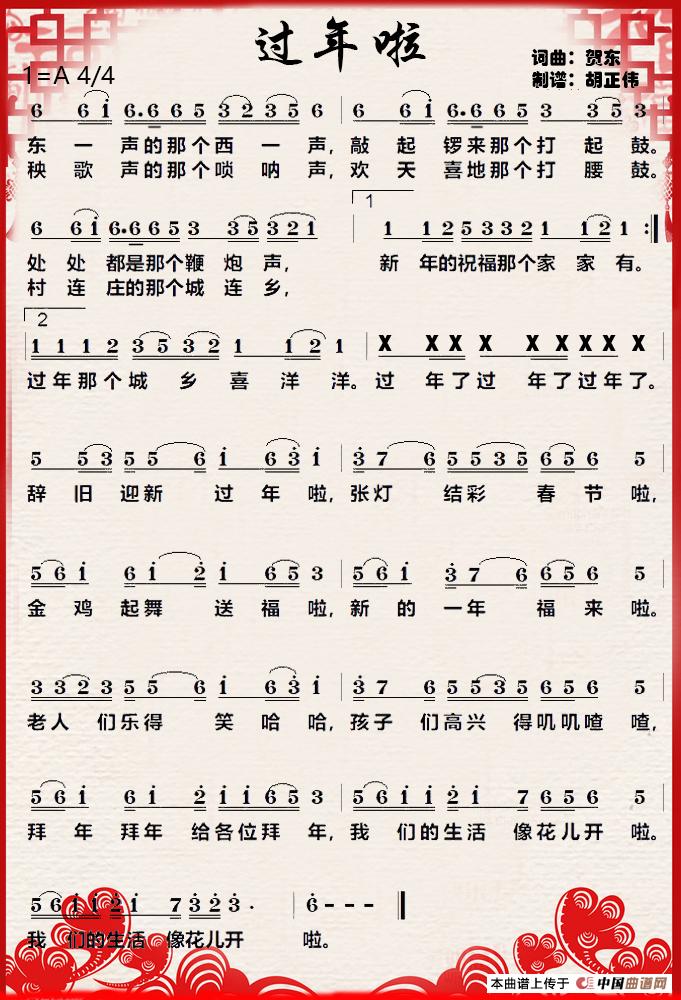 过年啦
词曲：贺东
1=A 4/4
制谱：胡正伟
6 6 i 6. 6 6 5 3 2 3 5 6 | 6 6 i 6. 6 6 5 3 3 5 3
东一声的那个西一声，敲起锣来那个打起鼓。
秧歌声的那个唢呐声，欢天喜地那个打腰鼓。
1
6 6 i 6. 6 6 5 3 3 5 3 2 1 | 1 1 2 5 3 3 2 1 1 2 1 :|
处处都是那个鞭炮声，新年的祝福那个家家有。
村连庄的那个城连乡，
2
1 1 1 2 3 5 3 2 1 1 2 1 | X X X X X X X X X
过年那个城乡喜洋洋。过年了过年了过年了。
5 5 3 5 5 6 i 6 3 i | 3 7 6 5 5 3 5 6 5 6 5
辞旧迎新过年啦，张灯结彩春节啦，
5 6 i 6 i 2 i 6 5 3 | 5 6 i 3 7 6 6 5 6 5
金鸡起舞送福啦，新的一年福来啦。
3 3 2 3 5 5 6 i 6 3 i | 3 7 6 5 5 3 5 6 5 6 5
老人们乐得笑哈哈，孩子们高兴得叽叽喳喳，
5 6 i 6 i 2 i i 6 5 3 | 5 6 i i 2 i 7 6 5 6 5
拜年拜年给各位拜年，我们的生活像花儿开啦。
5 6 i i 2 i 7 3 2 3 . | 6 - - -
我们的生活像花儿开啦。
本曲谱上传于 中国曲谱网